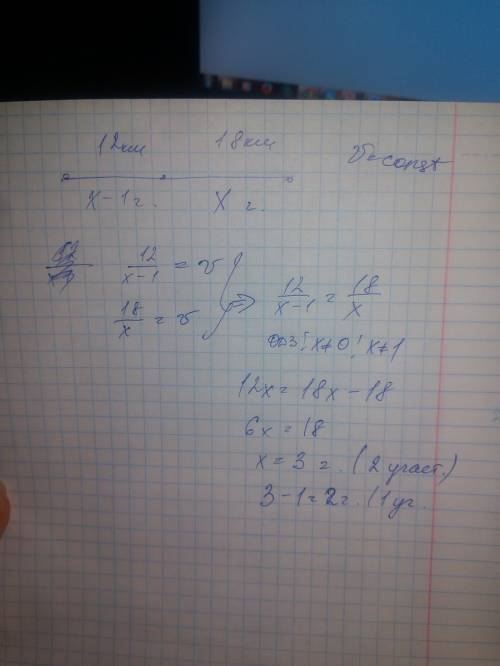 12км 18км
v=const
x-1 г. x г.
12/(x-1) = v
18/x = v
=> 12/(x-1) = 18/x
ОДЗ: x≠0; x≠1
12x = 18x - 18
6x = 18
x = 3 г. (2 участ.)
3-1=2г. (1 уч.